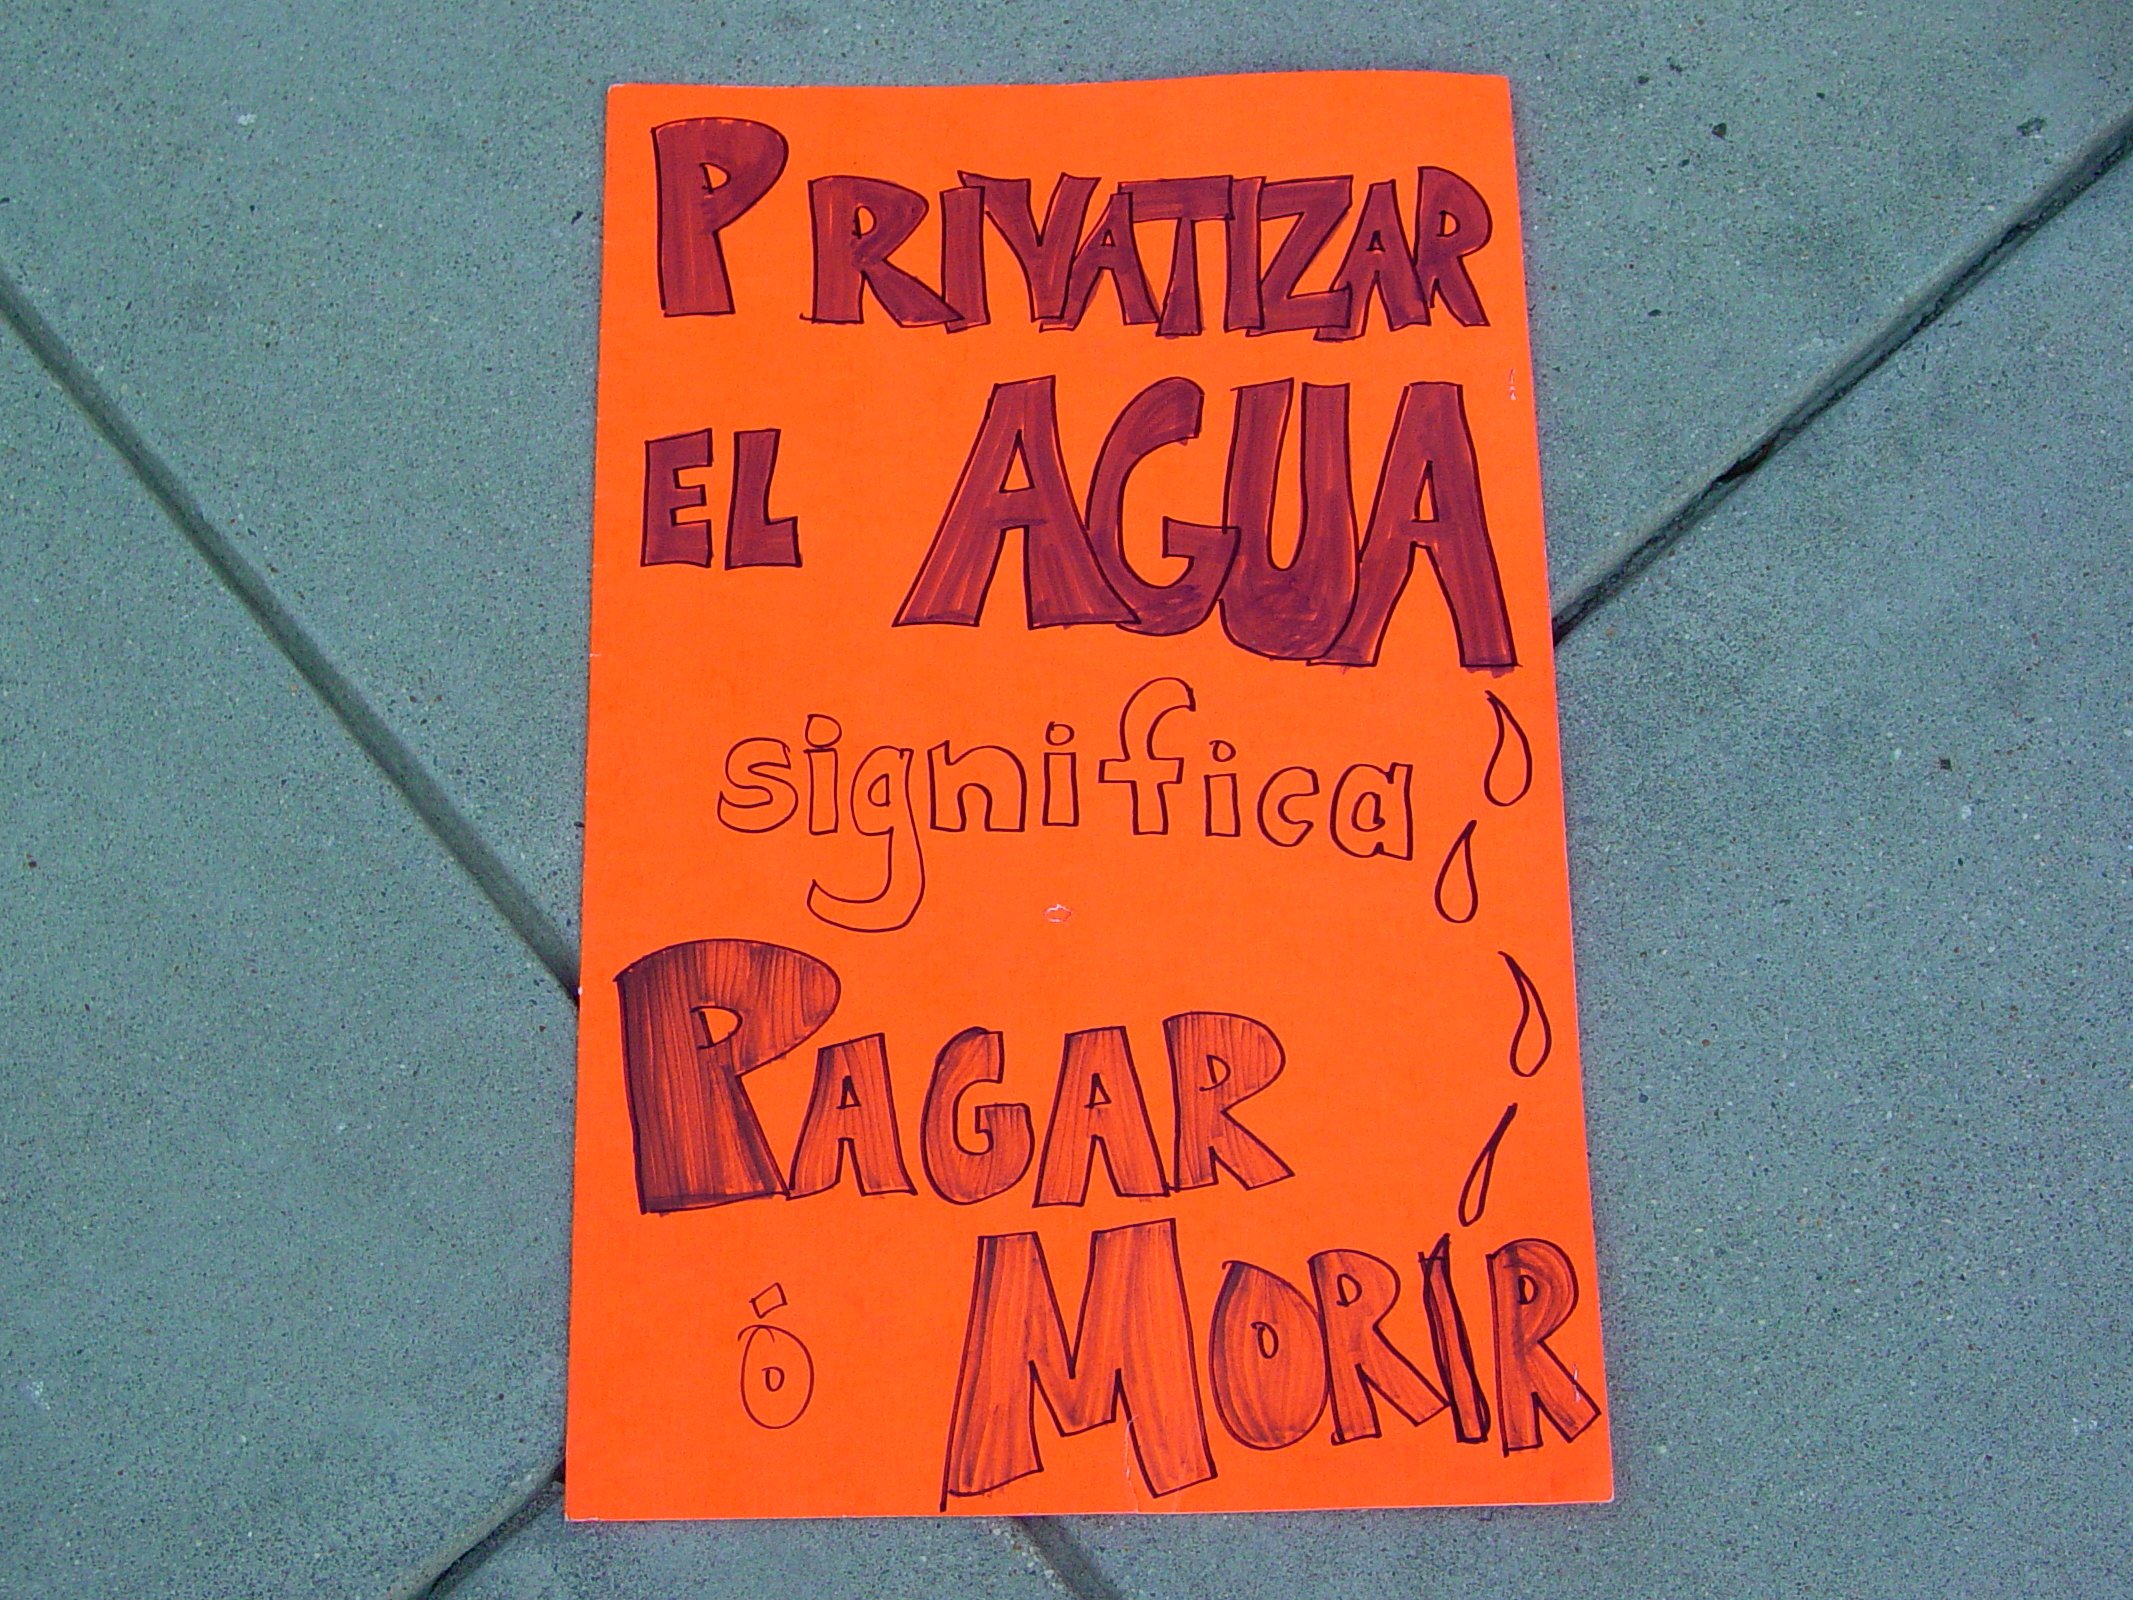 PRIVATIZAR
EL AGUA
significa
PAGAR
ó MORIR